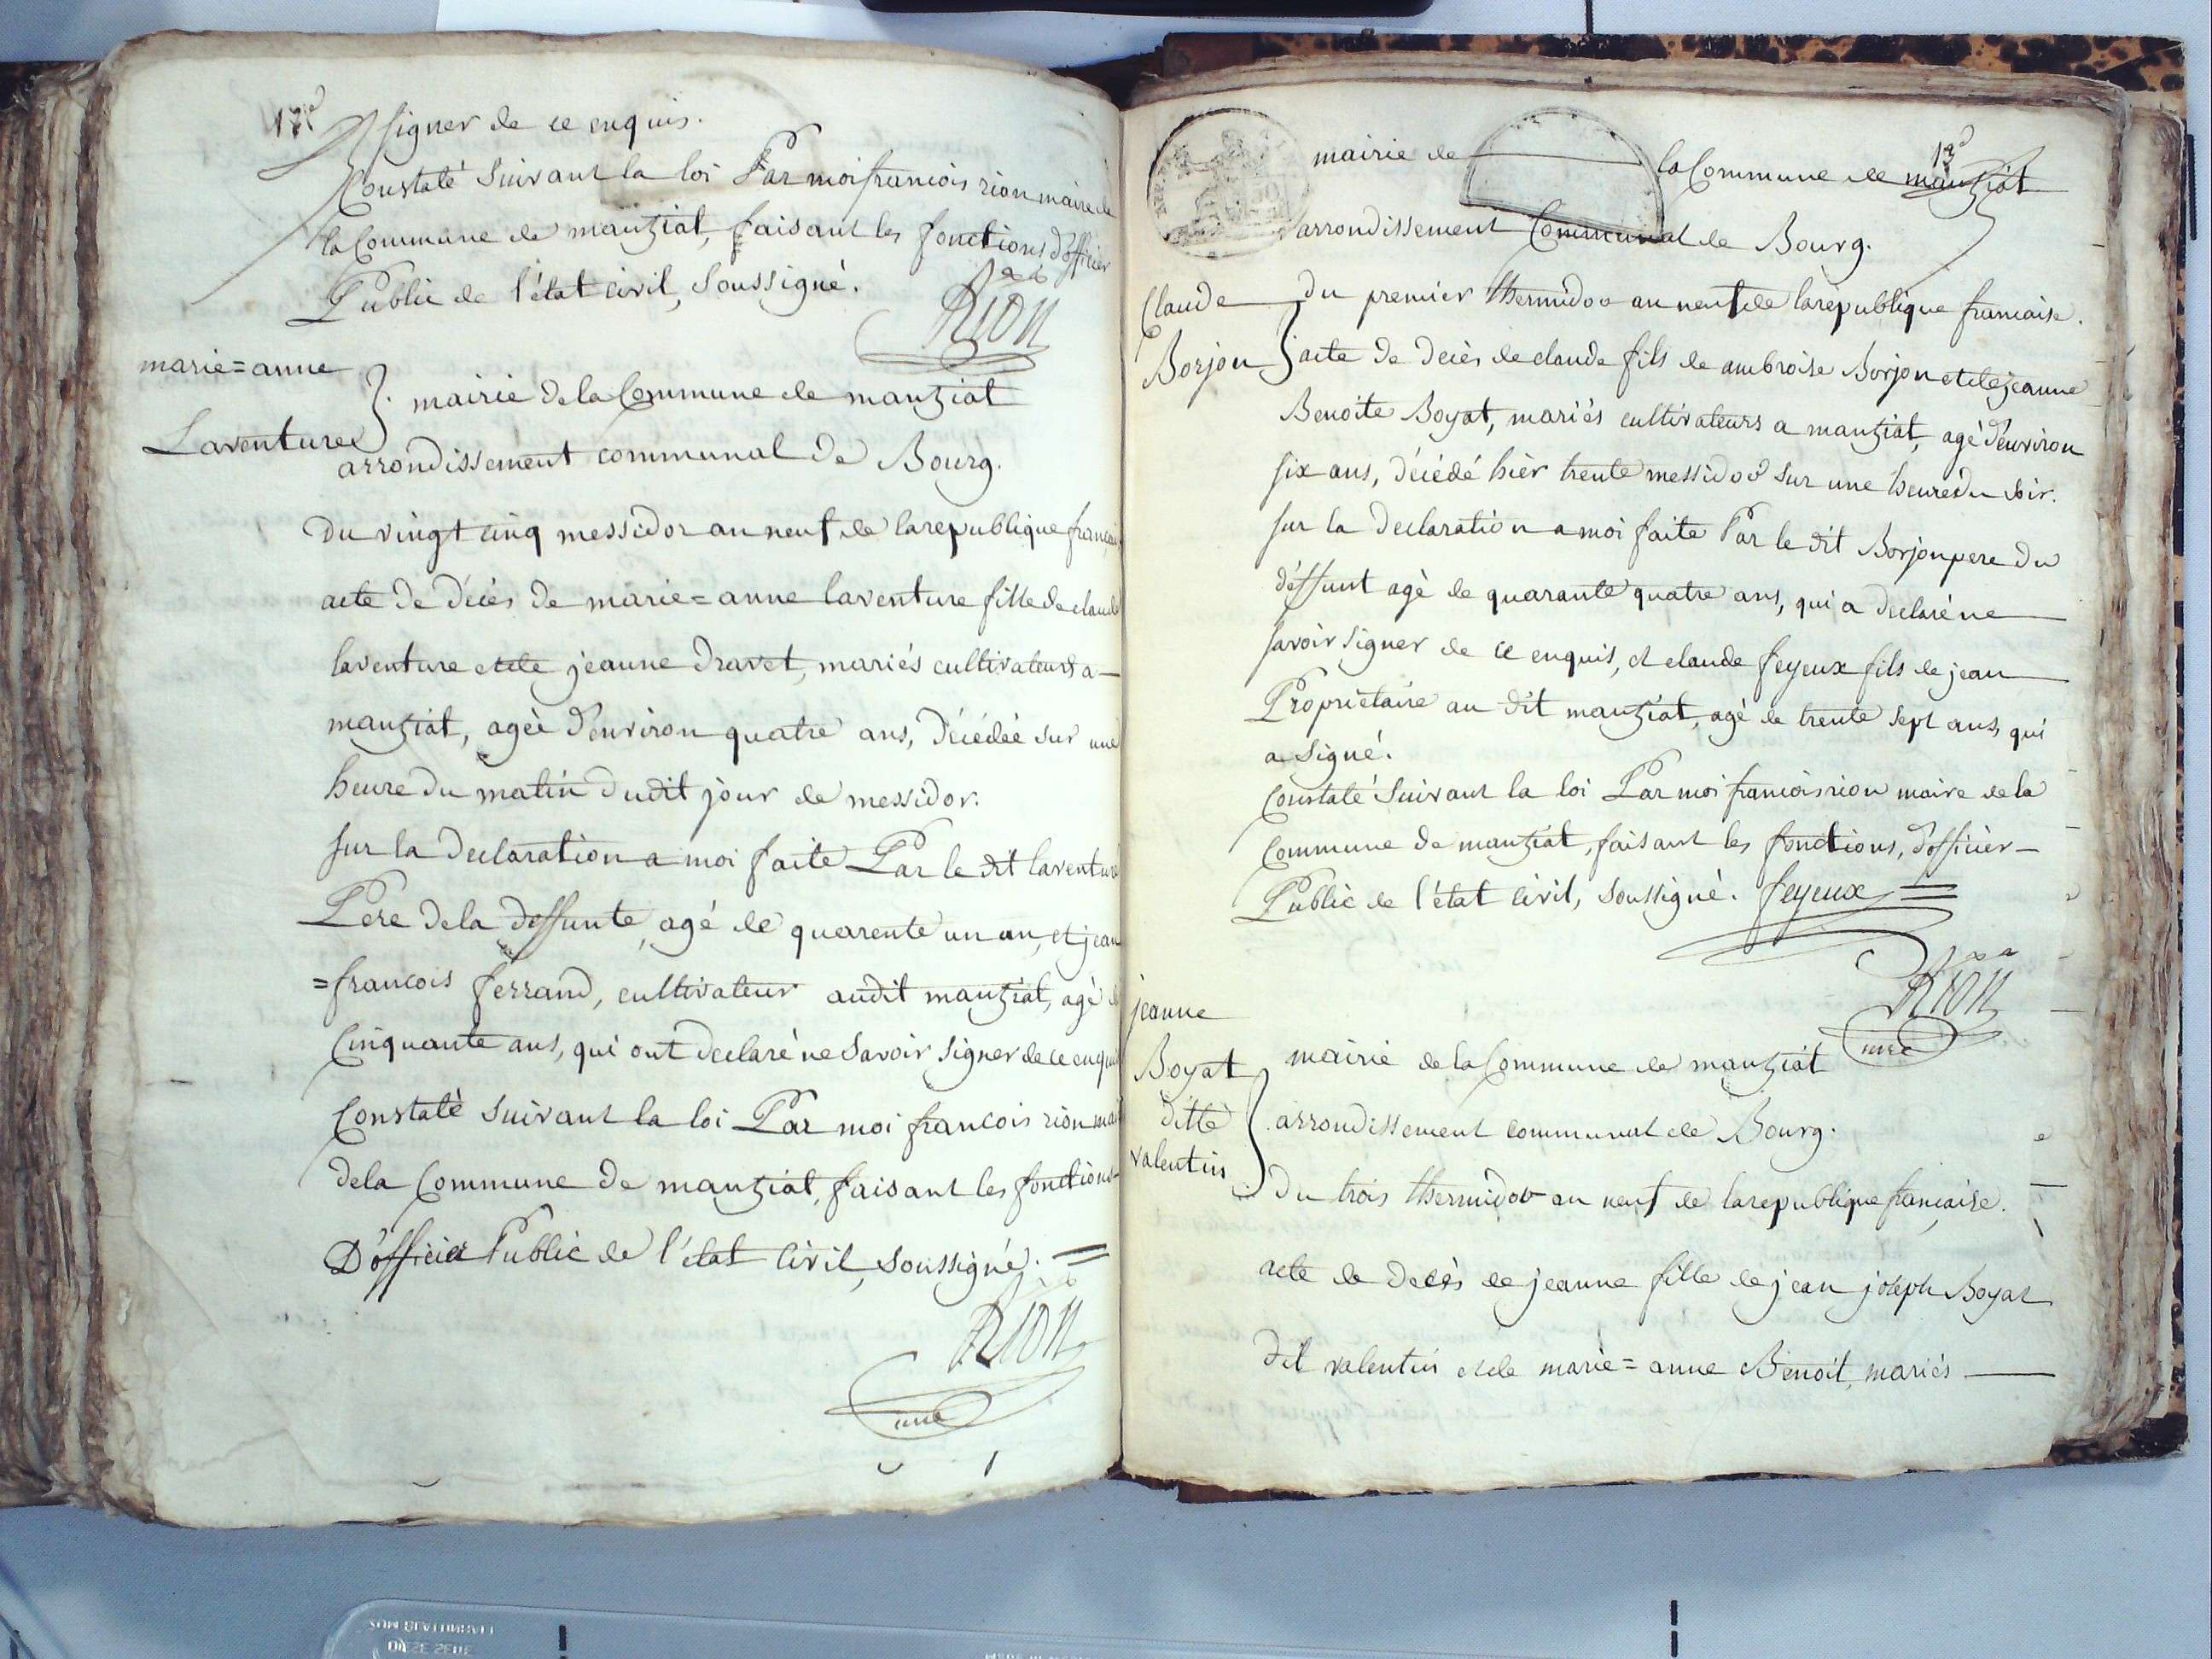 signer de ce enquis.
Constaté suivant la loi Par moi francois rion maire de
la Commune de manziat, faisant les fonctions d'officier
Public de l'état civil, soussigné.
Rion
marie=anne
Laventure
mairie de la Commune de manziat
arrondissement communal de Bourg.
Du vingt cinq messidor an neuf de la republique
acte de décès de marie=anne laventure fille de claude
laventure et de jeanne Dravet, mariés cultivateurs a
manziat, agèe d'environ quatre ans, décédée sur une
heure du matin dudit jour de messidor.
sur la declaration a moi faite Par le dit laventure
Pere de la deffunte, agé de quarente un an, et jean
=francois ferrand, cultivateur audit manziat, agè
Cinquante ans, qui ont declaré ne savoir signer de ce
Constatè suivant la loi Par moi francois rion
de la Commune de manziat, faisant les fonctions
D'officier Public de l'état civil, soussigné.
Rion
mre
13e
mairie de la Commune de manziat
arrondissement Communal de Bourg.
Claude
Borjon
du premier thermidor an neuf de la republique francaise.
acte de décès de claude fils de ambroise Borjon et de jeanne
Benoite Boyat, mariés cultivateurs a manziat, agé d'environ
six ans, décédé hièr trente messidor sur une heure du soir.
sur la declaration a moi faite Par le dit Borjon pere du
déffunt agè de quarante quatre ans, qui a declaré ne
savoir signer de ce enquis, et claude feyeux fils de jean
Propriètaire au dit manziat, agè de trente sept ans, qui
a signé.
Constaté suivant la loi Par moi francois rion maire de la
Commune de manziat, faisant les fonctions, d'officièr
Public de l'état civil, soussigné. feyeux
Rion
mre
jeanne
Boyat
ditte
valentin
mairie de la Commune de manziat
arrondissement communal de Bourg.
Du trois thermidor an neuf de la republique francaise.
acte de decès de jeanne fille de jean joseph Boyat
dit valentin et de marie=anne Benoit, mariés